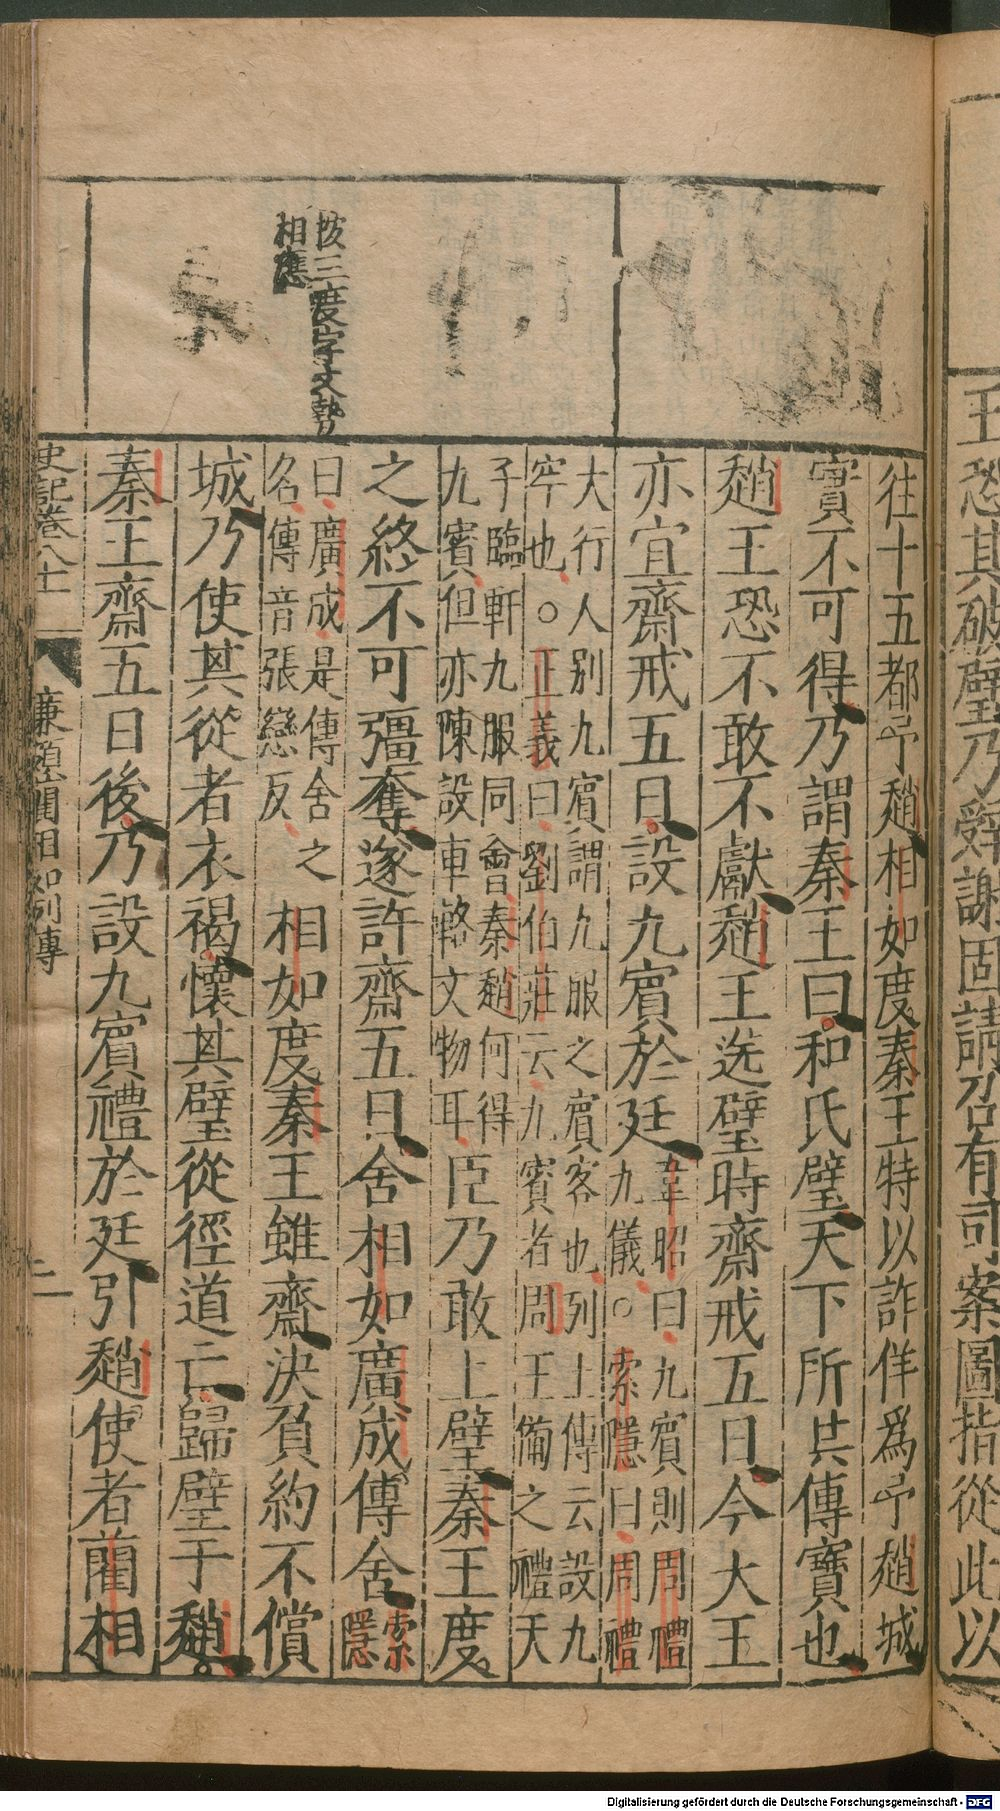 王恐其破璧乃辭謝固請召有司案圖指從此以
按三度字文勢
相應
往十五都予趙相如度秦王特以詐佯爲予趙城
實不可得乃謂秦王曰和氏璧天下所共傳寶也
趙王恐不敢不獻趙王送璧時齋戒五日今大王
亦宜齋戒五日設九賓於廷
韋昭曰九賓則周禮
九儀○索隱曰周禮
大行人別九賓謂九服之賓客也列士傳云設九
牢也○正義曰劉伯莊云九賓者周王備之禮天
子臨軒九服同會秦趙何得
九賓但亦陳設車輅文物耳
臣乃敢上璧秦王度
之終不可彊奪遂許齋五日舍相如廣成傳舍
索
隱
曰廣成是傳舍之
名傳音張戀反
相如度秦王雖齋決負約不償
城乃使其從者衣褐懷其璧從徑道亡歸璧于趙
秦王齋五日後乃設九賓禮於廷引趙使者藺相
史記卷八十一
廉頗藺相如列傳
二
Digitalisierung gefördert durch die Deutsche Forschungsgemeinschaft - DFG